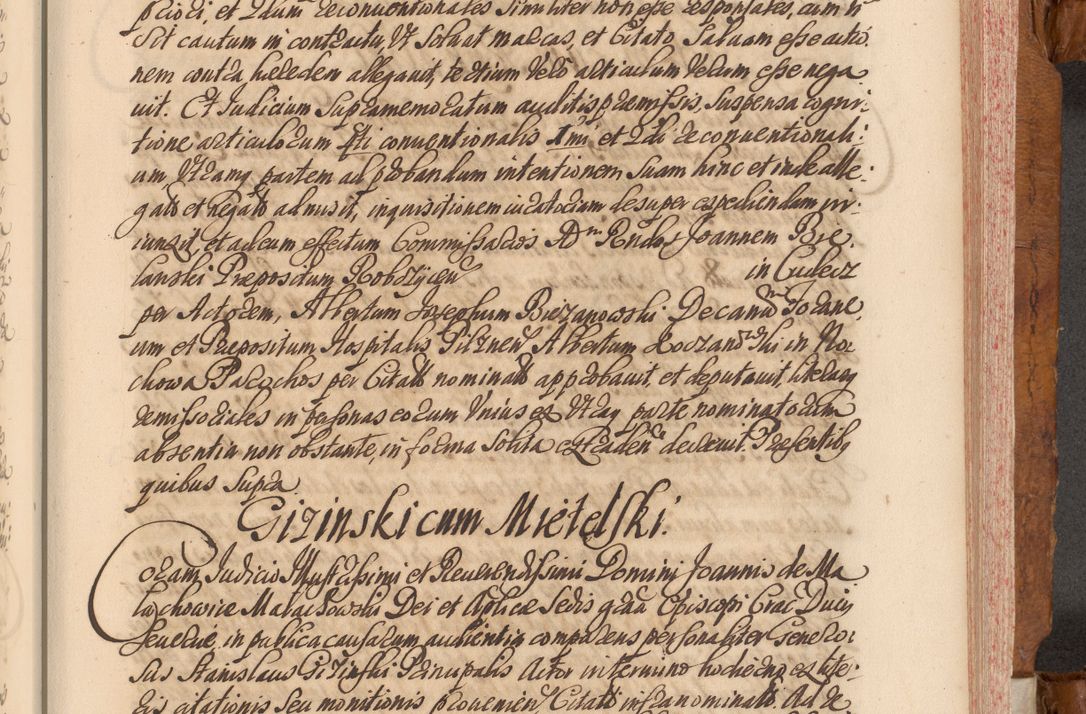 pcioci, et 2dum Reconventionales Similiter non esse responsales, cum n
Sit cautum in contractu, Vt Solvat marcas, et Citato Salvam esse actio
nem contra heredem allegavit, tertium Vero articulum Verum esse nega
vit. Et Judicium Supramemoratum auditis praemissis, Suspensa cogni:
tione articulorum 4ti conventionalis 1mi et 2di Reconventionali:
um Vtramq partem ad probandum intentionem Suam hinc et inde alle:
gato et negato admisit, inquisitionem juratoriam desuper expediendam in:
iunxit, et ad eum effectum Commissarios Adm Rndos Joannem Bie
lanski Praepositum Robszycen in Gulecz
per Actorem, Albertum Josephum Biezanowski Decanum Forane
um et Praepositum Hospitalis Pilznen Albertum Koczanowski in Ro
chowa Parochos per Citatum nominatos approbavit, et deputavit, literasq
remissoriales in personas eorum Unius ex Vtraq parte nominatorum
absentia non obstante, in forma Solita extraden decrevit. Praesentibq
quibus Supra
Gizinski cum Mietelski.
Coram Judicio Illustrissimi et Reverendissimi Domini Joannis de Ma
lachowice Malachowski Dei et Aplicae Sedis gratia Episcopi Crac Ducis
Severiae, in publica causarum audientia comparens personaliter Genero:
sus Stanislaus Gizinski Principalis Actor in termino hodierno ex lite:
ris citationis Seu monitionis provenien Citatum infranominatum. Ad Re